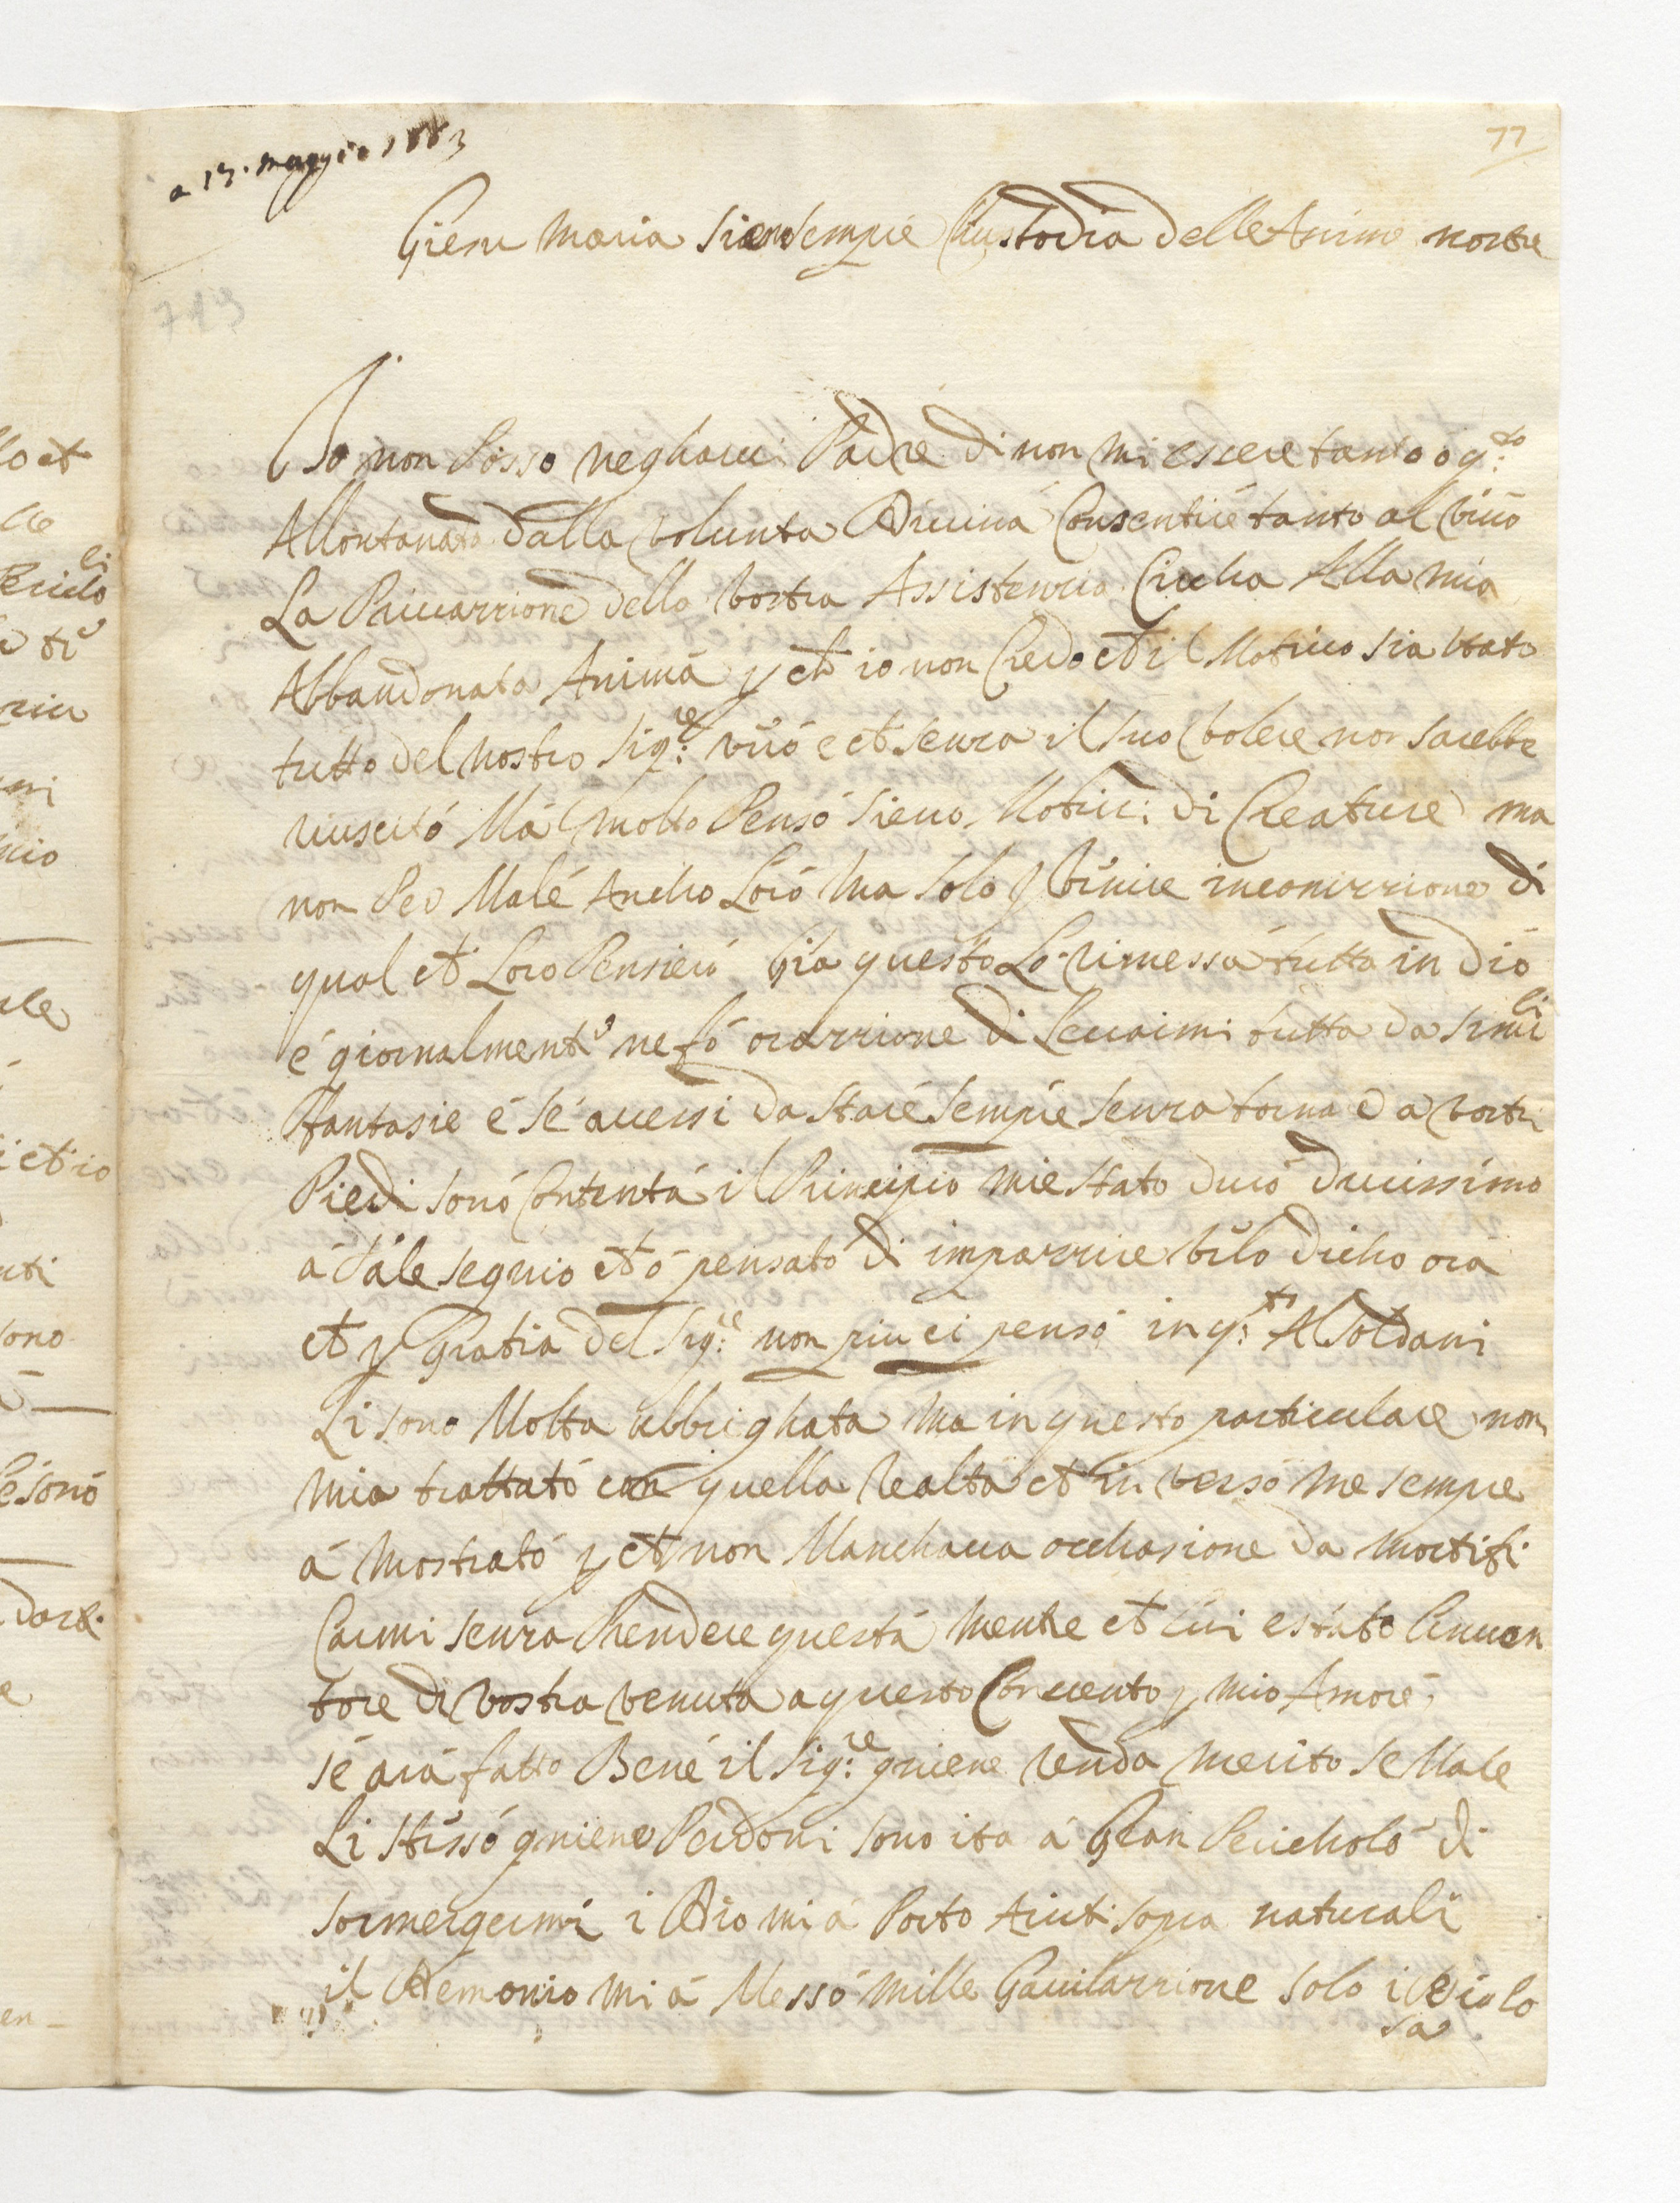 77
a 13. maggio 1883
Giesu Maria Sien Sempre Chustodia delle Anime nostre
713
Io non Posso negharvi Padre di non mi essere tanto o q.to
Allontanata dalla volunta Divina Consentire tanto al vivo
La Privazzione della Vostra Assistenzia Circha Alla mia
Abbandonata Anima p ch io non Credo ch il Motivo sia stato
tutto del nostro Sig.re vivo e ch senza il suo volere non sarebbe
riuscito Ma molto Penso Sieno Motivi di Creature ma
non Per Male Ancho Loro Ma Solo p venire inconizzione di
qual ch Loro Pensiero Gia questo Lo rimessa tutto in dio
e giornalmente ne fo orazzione di Levarmi tutta da simili
fantasie e se avessi da Stare Sempre Senza torna e a vostri
Piedi sono Contenta il Principio mie Stato duro durissimo
a tale segnio ch o pensato di impazzire ve lo dicho ora
ch p Gratia del Sig.re non piu ci penso in q.to Al Soldani
Li sono Molta ubbrighata Ma in questo particulare non
mia trattato con quella realta ch in verso me sempre
a Mostrato p ch non Manchava occhasione da mortifi
Carmi senza Prendere questa Mentre ch lui e stato l'inven
tore di vostra venuta a questo Convento p mio Amore
se ara fatto Bene il Sig.re gniene renda merito se Male
Li stesso gniene Perdoni sono ita a Gran Pericholo di
sormergermi i Dio mi a Porto Aiuti sopra naturali
il Demonio mi a Messo Mille Gavilazzione Solo i Cielo
sa